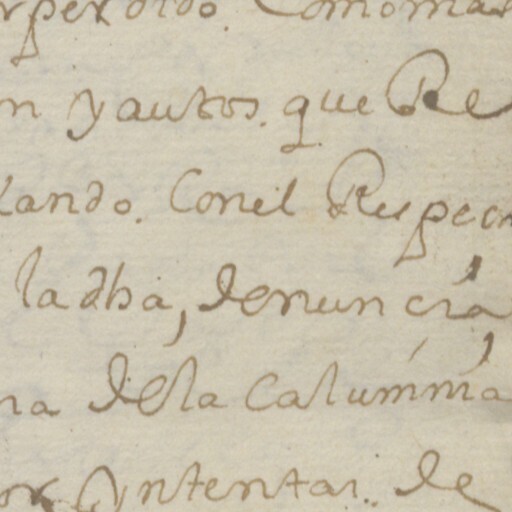 perdido. Como mas
n y autos. que Re
lando. Con el Respec
la dha, denuncia,
na dela Calumnia
Yntentar. de